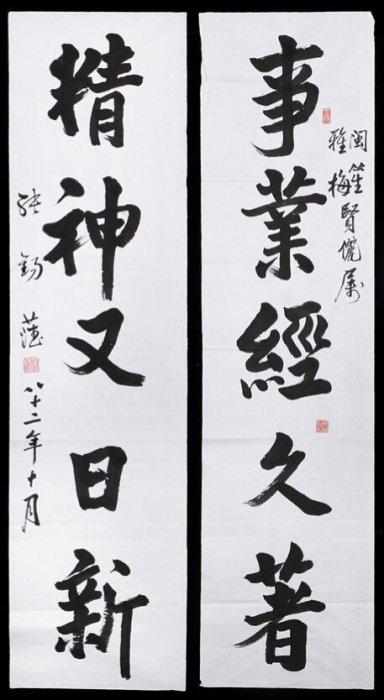 閩笙
雅梅
賢儷屬
事業經久著
精神又日新
張錫
八十二年十月